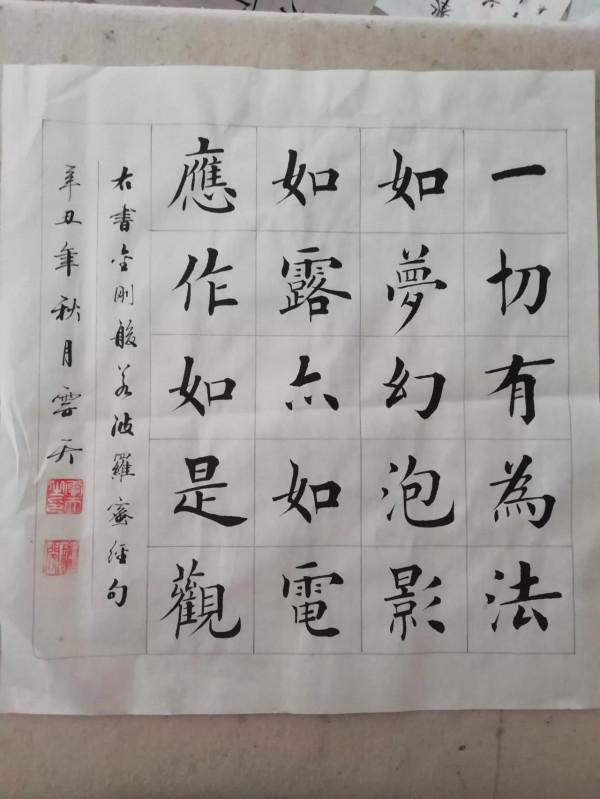 一切有為法
如夢幻泡影
如露亦如電
應作如是觀
右書金剛般若波羅蜜經句
辛丑年秋月雲天